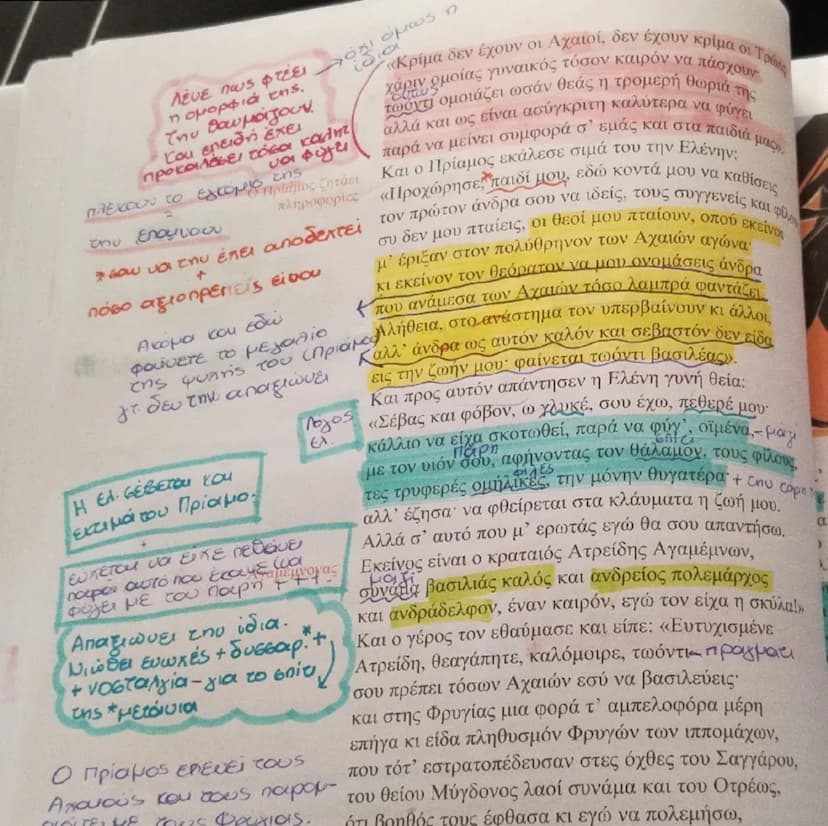 όχι όμως η
ίδια
Λένε πως φταίει
η ομορφιά της.
Την θαυμάζουν
και επειδή έχει
προκαλέσει τόσα καλύτερα
να φύγει
πλέκουν το εγκώμιο της
=
την επαινούν
Ο Πρίαμος ζητάει
πληροφορίες
*σαν να την έχει αποδεχτεί
+
πόσο αξιοπρεπείς είναι
Ακόμα και εδώ
φαίνεται το μεγαλείο
της ψυχής του (Πρίαμος)
γτ δεν την απαξιώνει
Λόγος
Ελ.
Η Ελ. σέβεται και
εκτιμά τον Πρίαμο.
+
εύχεται να είχε πεθάνει
παρά αυτό που έκανε (να
φύγει με τον Πάρη
Αγαμέμνονας
Απαξιώνει την ίδια.
Νιώθει ενοχές + δυσσαρ.* +
+ νοσταλγία – για το σπίτι
της *μετάνοια
Ο Πρίαμος επαινεί τους
Αχαιούς και τους παρομ-
με τους Φρύγιας.
«Κρίμα δεν έχουν οι Αχαιοί, δεν έχουν κρίμα οι Τρώες
χάριν ομοίας γυναικός τόσον καιρόν να πάσχουν·
έτσι
τωόντι ομοιάζει ωσάν θεάς η τρομερή θωριά της
αλλά και ως είναι ασύγκριτη καλύτερα να φύγει
παρά να μείνει συμφορά σ' εμάς και στα παιδιά μας».
Και ο Πρίαμος εκάλεσε σιμά του την Ελένην:
«Προχώρησε,* παιδί μου, εδώ κοντά μου να καθίσεις
τον πρώτον άνδρα σου να ιδείς, τους συγγενείς και φίλους
συ δεν μου πταίεις, οι θεοί μου πταίουν, οπού εκείνοι
μ' έριξαν στον πολύθρηνον των Αχαιών αγώνα·
κι εκείνον τον θεόρατον να μου ονομάσεις άνδρα
που ανάμεσα των Αχαιών τόσο λαμπρά φαντάζει.
Αλήθεια, στο ανάστημα τον υπερβαίνουν κι άλλοι,
αλλ' άνδρα ως αυτόν καλόν και σεβαστόν δεν είδα
εις την ζωήν μου· φαίνεται τωόντι βασιλέας».
Και προς αυτόν απάντησεν η Ελένη γυνή θεία:
«Σέβας και φόβον, ω γλυκέ, σου έχω, πεθερέ μου·
κάλλιο να είχα σκοτωθεί, παρά να φύγ', οϊμένα, – μαζί
Πάρη σπίτι
με τον υιόν σου, αφήνοντας τον θάλαμον, τους φίλους,
φίλες
τες τρυφερές ομήλικές, την μόνην θυγατέρα + την κόρη
αλλ' έζησα· να φθείρεται στα κλάυματα η ζωή μου.
Αλλά σ' αυτό που μ' ερωτάς εγώ θα σου απαντήσω.
Εκείνος είναι ο κραταιός Ατρείδης Αγαμέμνων,
μαζί
συνάμα βασιλιάς καλός και ανδρείος πολεμάρχος
και ανδράδελφον, έναν καιρόν, εγώ τον είχα η σκύλα!»
Και ο γέρος τον εθαύμασε και είπε: «Ευτυχισμένε
Ατρείδη, θεαγάπητε, καλόμοιρε, τωόντι – πράγματι
σου πρέπει τόσων Αχαιών εσύ να βασιλεύεις·
και στης Φρυγίας μια φορά τ' αμπελοφόρα μέρη
επήγα κι είδα πληθυσμόν Φρυγών των ιππομάχων,
που τότ' εστρατοπέδευσαν στες όχθες του Σαγγάρου,
του θείου Μύγδονος λαοί συνάμα και του Οτρέως,
ότι βοηθός τους έφθασα κι εγώ να πολεμήσω,